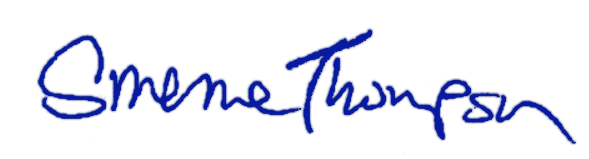 Smeme Thompson